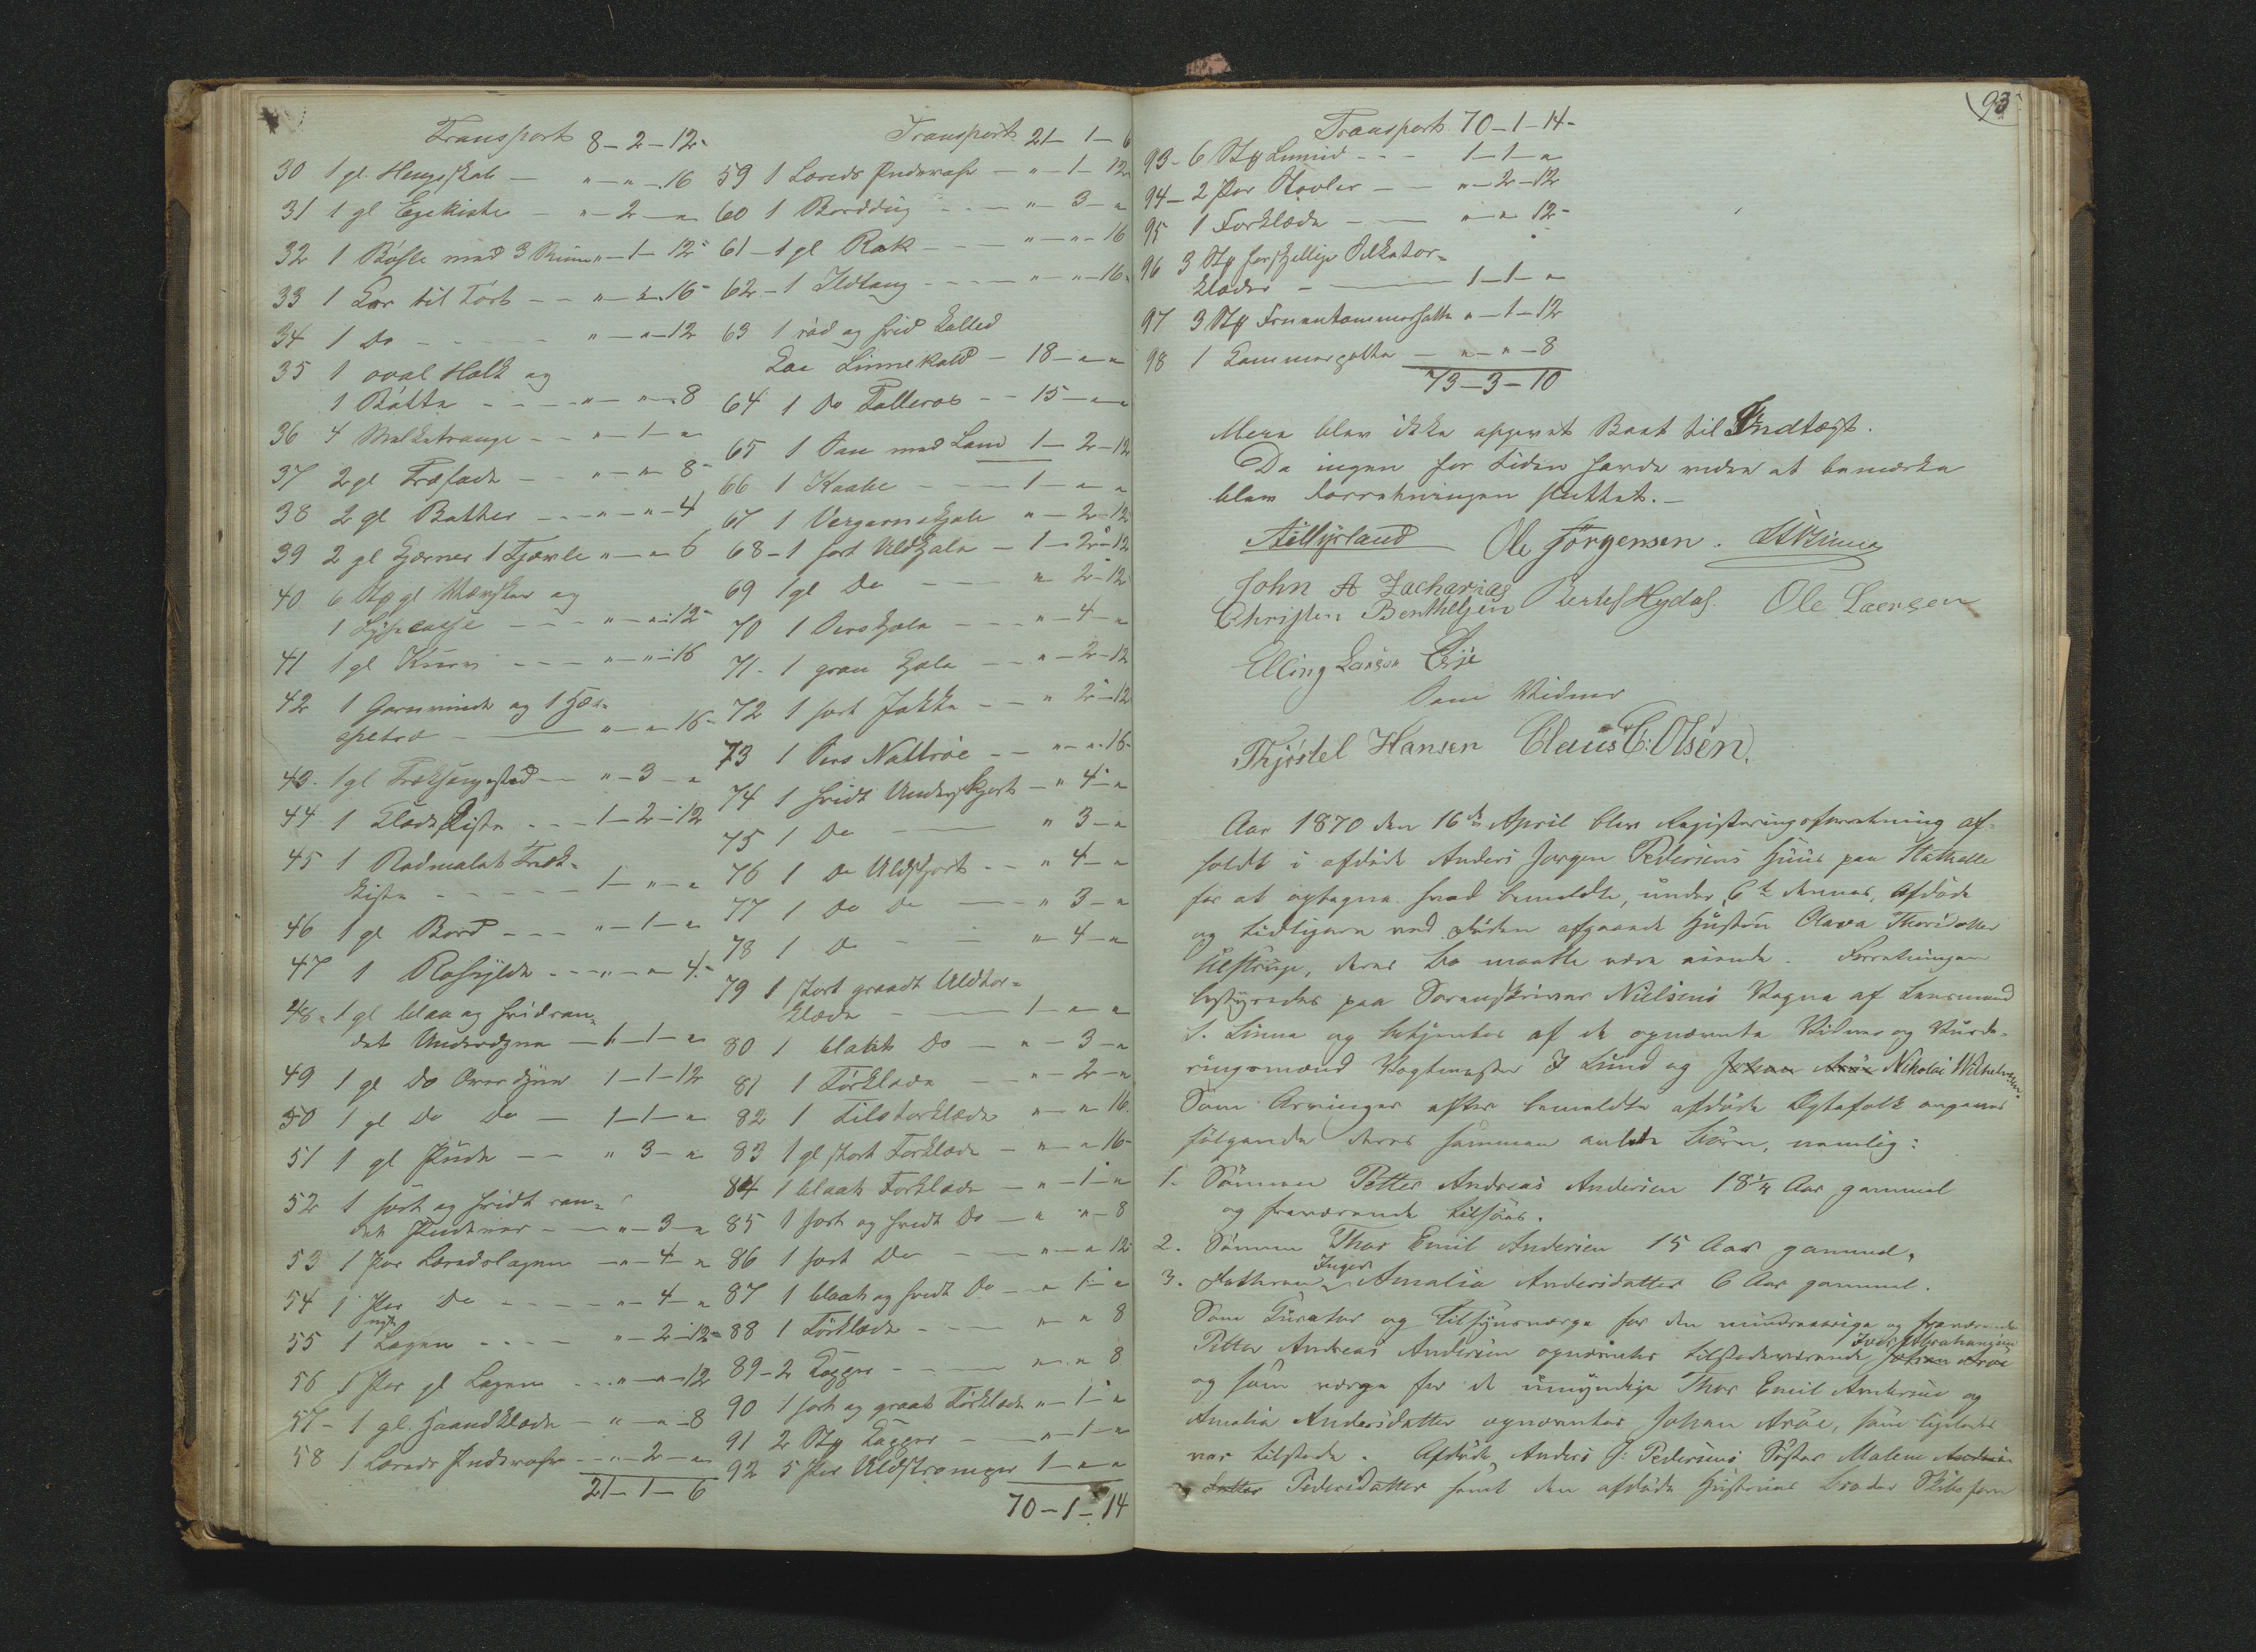 Transport 8-2-12-
30 1 gl. Hengeskab - " - " - 16
31 1 gl Egekiste - " - 2 - "
32 1 Bøsle med 3 " - 1 - 12
33 1 Kar til Tørk - - 16-
34 1 Do - - - " - " - 12
35 1 oval Halk og
1 Bøtte - - - " - " - 8
36 4 Melketrauge - - " - 1 - "
37 2 gl Træfade - - " - " - 8-
38 2 gl Bøtter - - - " - " - 4
39 2 gl Kjerner 1 Kjærele " - " - 6
40 6 Stk gl og
1 - - - " - " - 12-
41 1 gl Kurv - - - " - " - 16
42 1 Garnvinde og 1 Hes-
peltræ - " - " - 16-
43. 1 gl Træksengested - - " - 3 - "
44 1 Klædekiste - - - 1-2-12
45 1 Rødmalet Træk-
kiste - - - - 1 - " - "
46 1 gl Bord - - - " - 1 - "
47 1 Roehylde - - - " - " - 4.-
48 - 1 gl blaa og hvidran-
det Underdyne - 1-1-"
49 1 gl Do Overdyne 1-1-12
50 1 gl Do Do - 1-1-"
51 1 gl Pude - - " 3 - "
52 1 sort og hvidt ran-
det Pudevar - - " - 3 - "
53 1 Par Lærredslagen - " - 4 - "
54 1 Par Do - - - - " - 4 - "
55 1 nyt Lagen - - - - " - 2-12-
56 1 Par gl Lagen - - " - " - 12
57 - 1 gl. Haandklæde - " - " - 8
58 1 Lærreds Pudevar - - " - 2 - "
21-1-6
Transport 21-1-6
59 1 Lærreds Pudevar - " - 1 - 12
60 1 Borddug - - - " - 3 - "
61 - 1 gl Rok - - - " - " - 16
62 - 1 Ildtang - - - - " - " - 16-
63 1 rød og hvid kalled
Koe Linnekold - 18 - " - "
64 1 Do Palleros - - 15 - " - "
65 1 Sau med Lam 1-2-12
66 1 Kaabe - - - 1 - " - "
67 1 Vergarnskjole " - 2-12
68 - 1 sort Uldkjole - 1-2-12
69 1 gl Do - - " 2-12
70 1 Sirskjole - - - " - 4 - "
71 - 1 graa Kjole - - " - 2-12
72 1 sort Jakke - - " 2-12
73 1 Sirs Nattrøie - - " - " - 16-
74 1 hvidt Underskjørt - " 4 - "
75 1 Do - " 3 - "
76 1 Do Uldskjørt - - " 4 - "
77 1 Do Do - - " 3 - "
78 1 Do - - " - 4 - "
79 1 stort graadt Uldtør-
klæde - 1 - " - "
80 1 blaat Do - " - 3 - "
81 1 Tørklæde - - " - 2 - "
82 1 Silketørklæde " - " 16.
83 1 gl stort Tørklæde - " - " 16-
84 1 blaat Forklæde - " - 1 - "
85 1 sort og hvidt Do - " " - 8
86 1 sort Do - - " - " 12
87 1 blaat og hvidt Do - " 1 - "
88 1 Tørklæde - - - " - " 8
89 - 2 Kapper - - " - " 8
90 1 sort og graat Tørklæde " - 1 - "
91 2 Stk Kapper - " - 1 - "
92 5 Par Uldstrømper 1 - " - "
70-1-14
93
Transport 70-1-14-
93 - 6 Stk - - - 1-1-"
94 - 2 Par Støvler - - " - 2-12
95 1 Forklæde - - " - " 12-
96 3 Stk forskjellige Silketør-
klæder - 1-1-"
97 3 Stk Fruentømmerhatte " - 1-12
98 1 Kammerpotte - " - " - 8
73-3-10
Mere blev ikke opgivet Boet til Indtægt.
Da ingen for tiden havde videre at bemærke
blev Forretningen sluttet.-
Ole Jörgensen.
John A Zacharias
Christen Benthelsen Ole Laersen
Elling Larsen
Som Vidner
Thjøstel Hansen Claus C: Olsen.
Aar 1870 den 16de April blev Registeringsforretning af-
holdt i afdøde Anders Jørgen Pedersens Huus paa Stathelle
for at optegne hvad bemeldte, under 6te dennes, Afdøde
og tidligere ved Døden afgaaede Hustru Olava Thorsdatter
Ulstrup, deres Bo maatte være eiende. Forretningen
bestyredes paa Sorenskriver Nielsens Vegne af Lensmand
S. Linna og betjentes af de opnævnte Vidner og Vurde-
ringsmænd Vogtmester J Lund og Johan Arøe Nikolai Wilhelmsen.
Som Arvinger efter bemeldte afdøde Egtefolk angaves
følgende deres sammen avlede Børn, nemlig:
1. Sønnen Petter Andreas Andersen 18 1/4 Aar gammel
og fraværende tilsøes.
2. Sønnen Thor Emil Andersen 15 Aar gammel.
3. Datteren Inger Amalia Andersdatter 6 Aar gammel.
Som Curator og tilsynsværge for den mindreaarige og fraværende
Petter Andreas Andersen opnævntes tilstedeværende Johan Arøe Iver Abrahamsen
og som værge for de umyndige Thor Emil Andersen og
Amalia Andersdatter opnævntes Johan Arøe, som ligeledes
var tilstede. Afdøde Anders J: Pedersens Søster Malene Anders-
datter Pedersdatter samt den afdøde Hustrues Broder Skibsfører